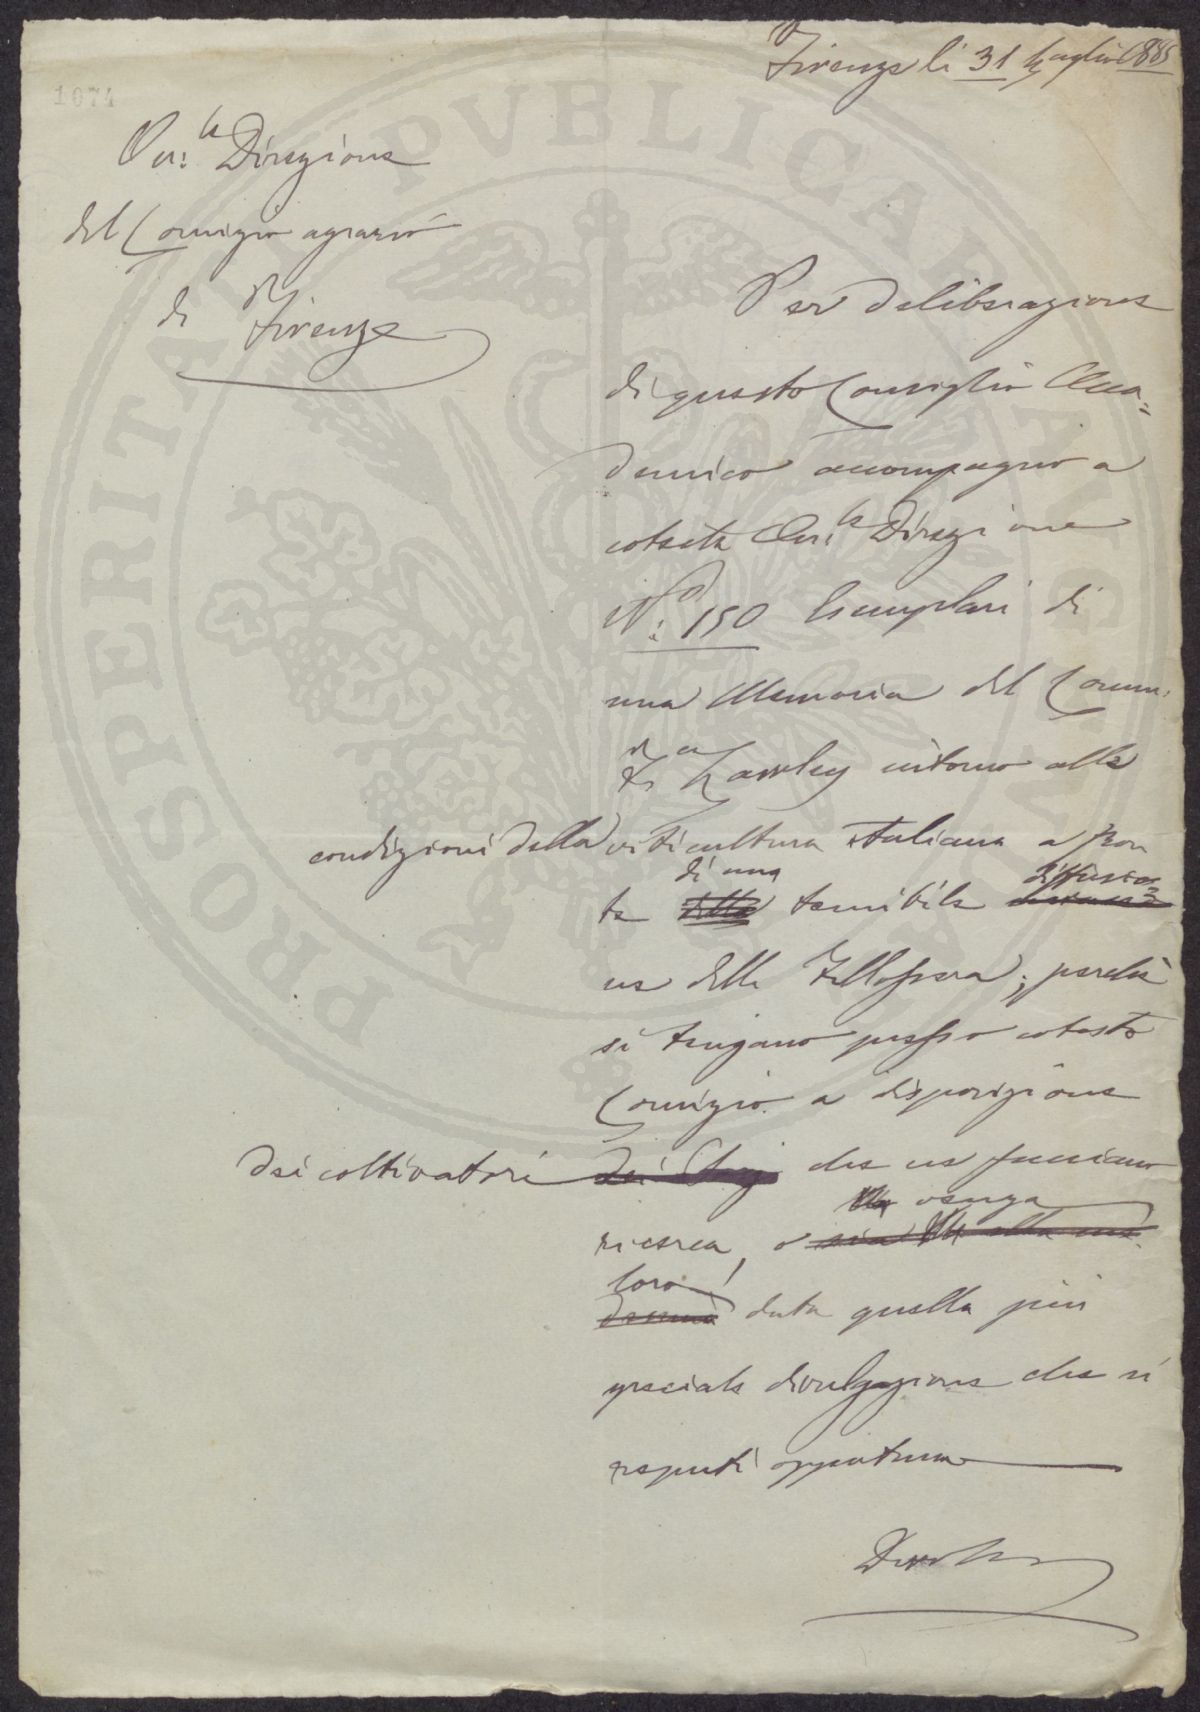 Firenze li 31 Luglio 1885
1074
On.le Direzione
del Comizio agrario
di Firenze
Per deliberazione
di questo Consiglio Acca=
demico accompagno a
cotesta On.le Direzione
N.o 150 Esemplari di
una Memoria del Comm.
F.co Lawley intorno alle
condizioni della viticultura italiana a fron
te della di una temibile diffusio=
ne della Fillossera; perchè
si tengano presso cotesto
Comizio a disposizione
dei coltivatori che ne facciano
ricerca, o venga
loro data quella più
speciale divulgazione che si
reputi opportuna
PROSPERITATI PVBLICAE AVGENDAE